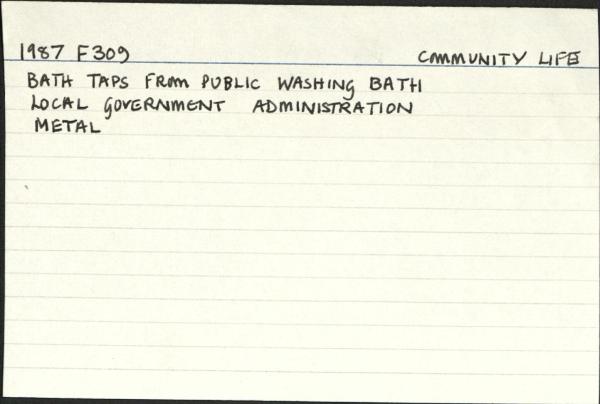 1987 F309 COMMUNITY LIFE
BATH TAPS FROM PUBLIC WASHING BATH
LOCAL GOVERNMENT ADMINISTRATION
METAL